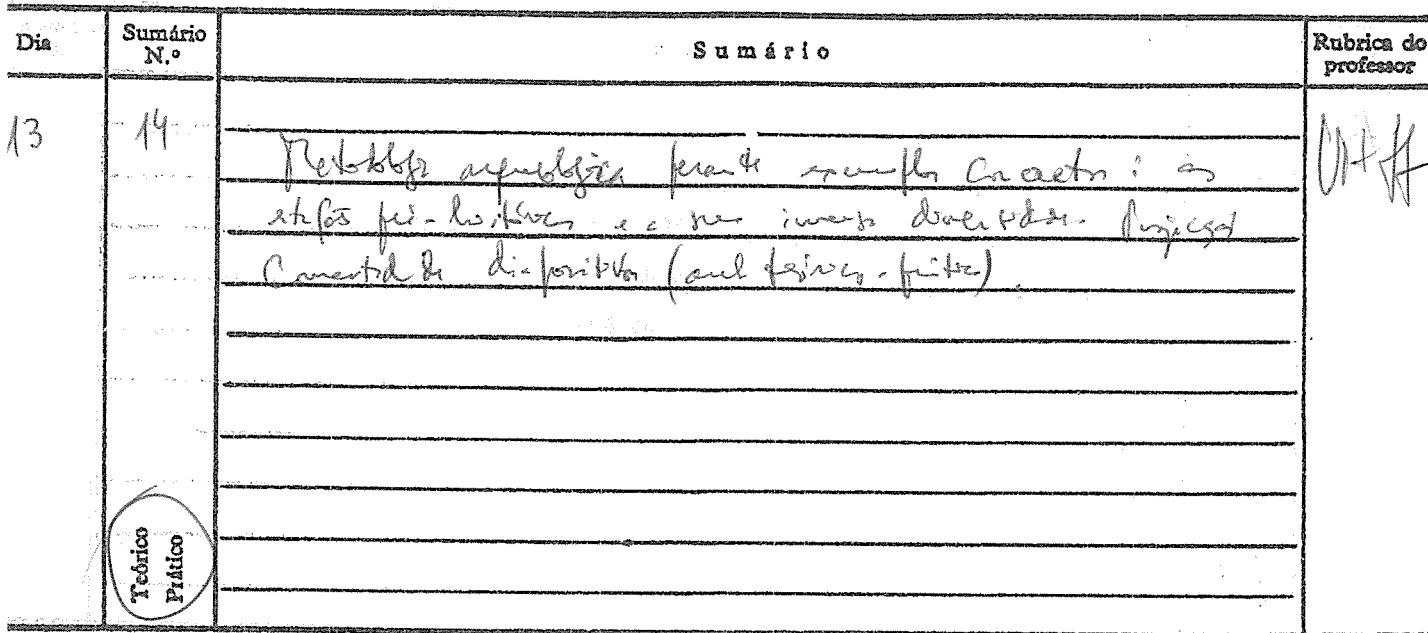 Dia
Sumário N.º
Sumário
Rubrica do professor
13
14
Metodologia arqueológica perante exemplos concretos: as
estações pré-históricas e a sua imensa diversidade. Projecção
Comentada de diapositivos (aula teórico-prática).
Teórico
Prático